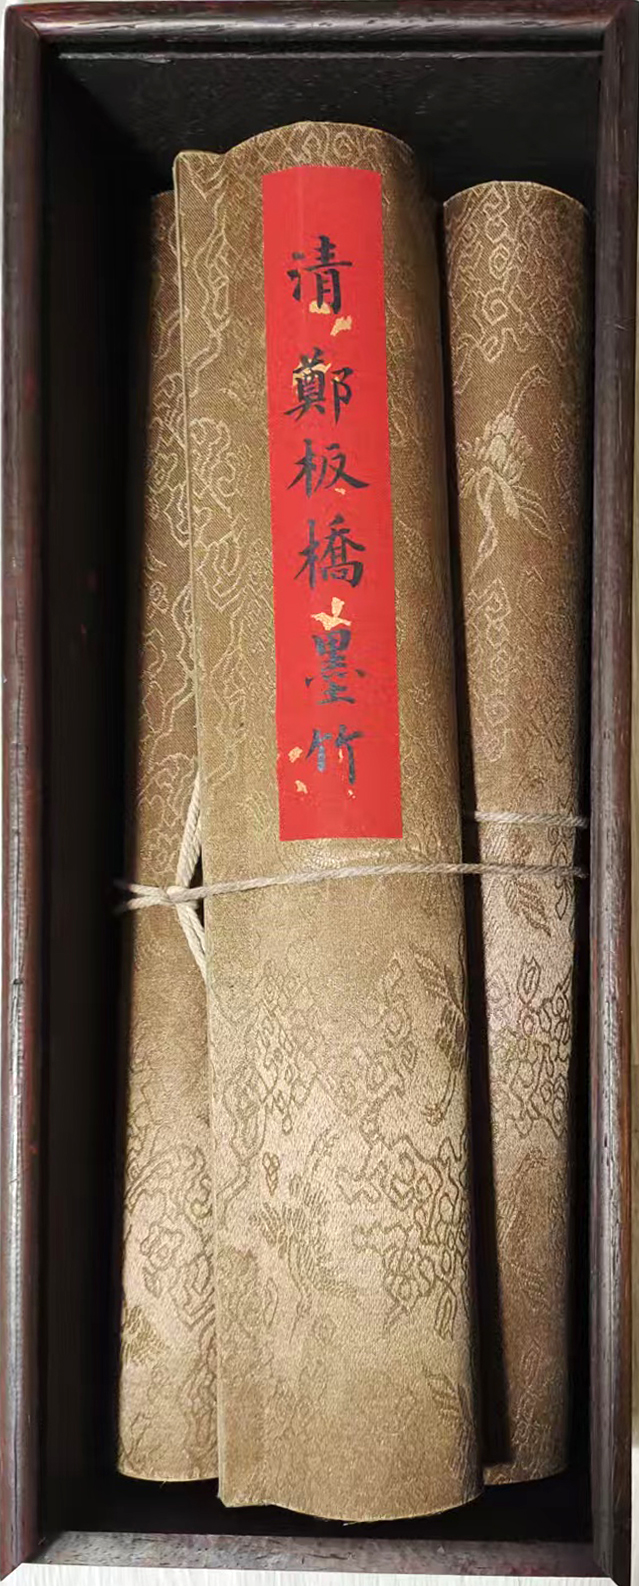 清鄭板橋墨竹